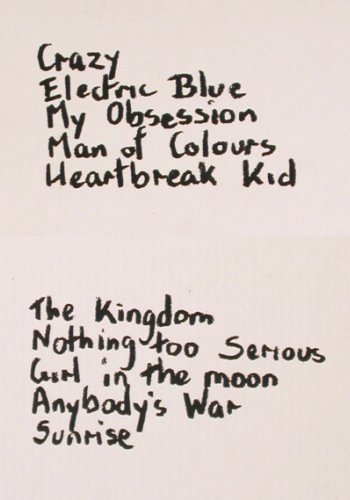 Crazy
Electric Blue
My Obsession
Man of Colours
Heartbreak Kid
The Kingdom
Nothing too Serious
Girl in the moon
Anybody's War
Sunrise